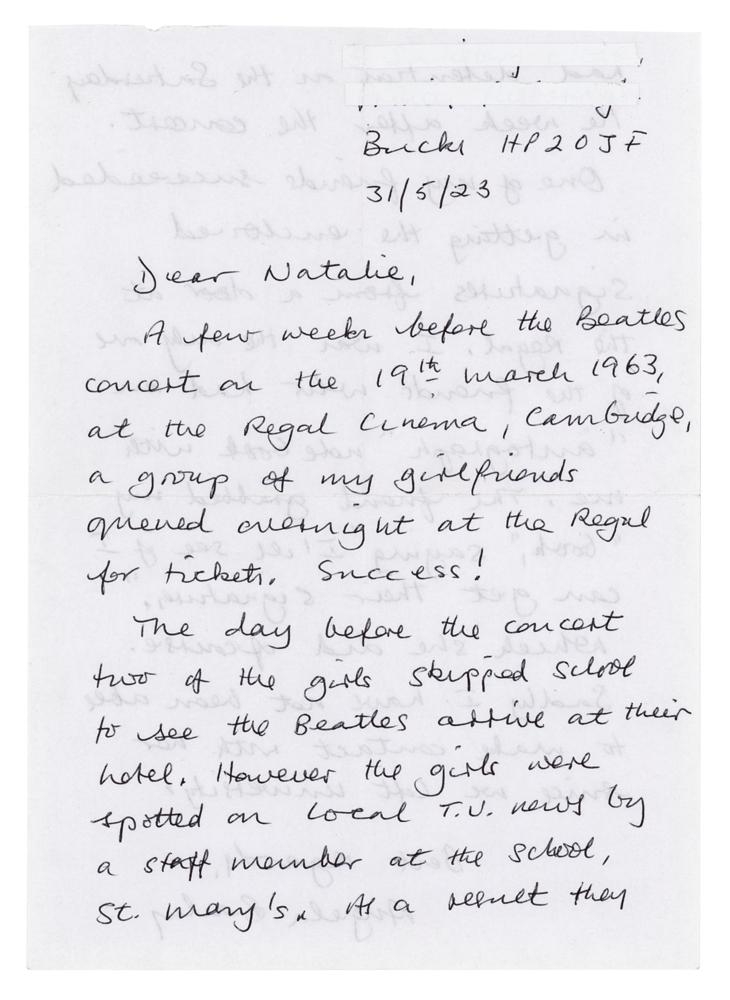 Bucks HP20JF
31/5/23
Dear Natalie,
A few weeks before the Beatles
concert on the 19th March 1963,
at the Regal Cinema, Cambridge,
a group of my girlfriends
queued overnight at the Regal
for tickets. Success!
The day before the concert
two of the girls skipped school
to see the Beatles arrive at their
hotel. However the girls were
spotted on local T.V. news by
a staff member at the school,
St. Mary's. As a result they